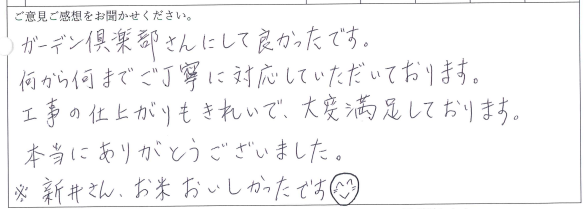 ご意見ご感想をお聞かせください。
ガーデン倶楽部さんにして良かったです。
何から何までご丁寧に対応していただいております。
工事の仕上がりもきれいで、大変満足しております。
本当にありがとうございました。
※新井さん、お米おいしかったです